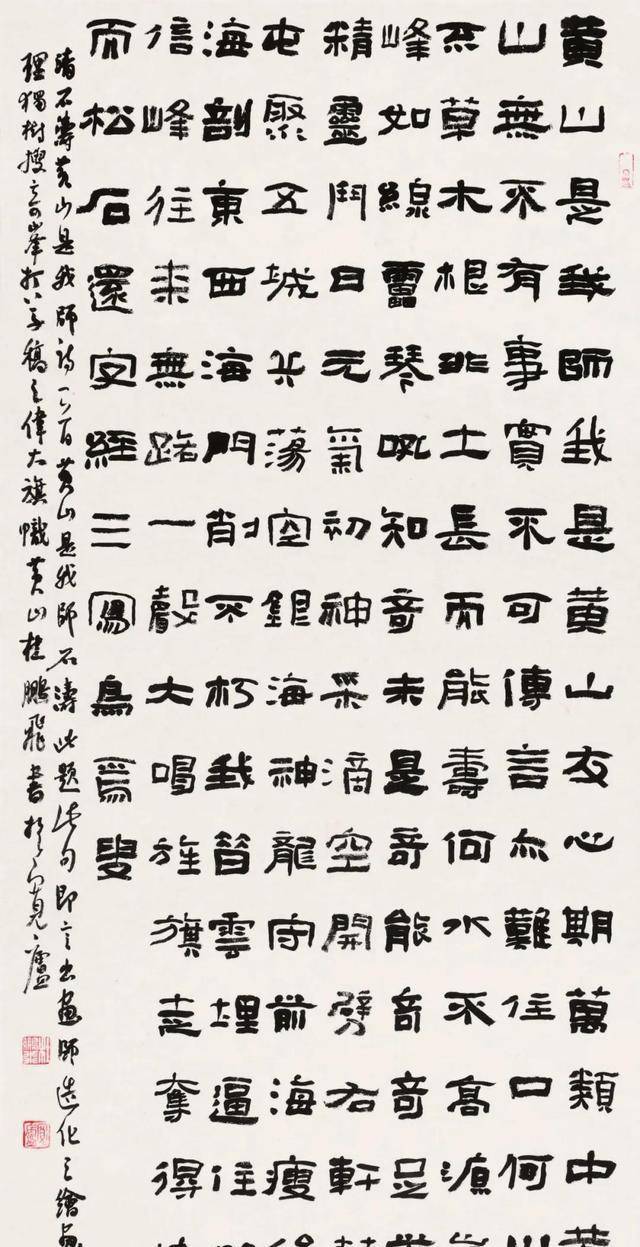 黄山是我師我是黄山友心期萬類中
山無不有事實不可傳言亦難住口何
不草木根非土長而能壽何水不高源
峰如線雷琴吼知奇未是奇能奇奇足
精靈鬥日元氣初神采滴空開劈右軒
屯聚五城兵蕩空銀海神龍守前海瘦
海剖東西海門削不朽我昔雲埋逼住
信峰往來無路一聲大唱旌旗走奪得
而松石還字經三寫烏焉叟
清石濤黄山是我師詩一首黄山是我師石濤此題詩句即言書畫師造化之繪畫
理獨樹搜盡奇峰打草稿之偉大旗幟黄山桂鵬飛書於見廬